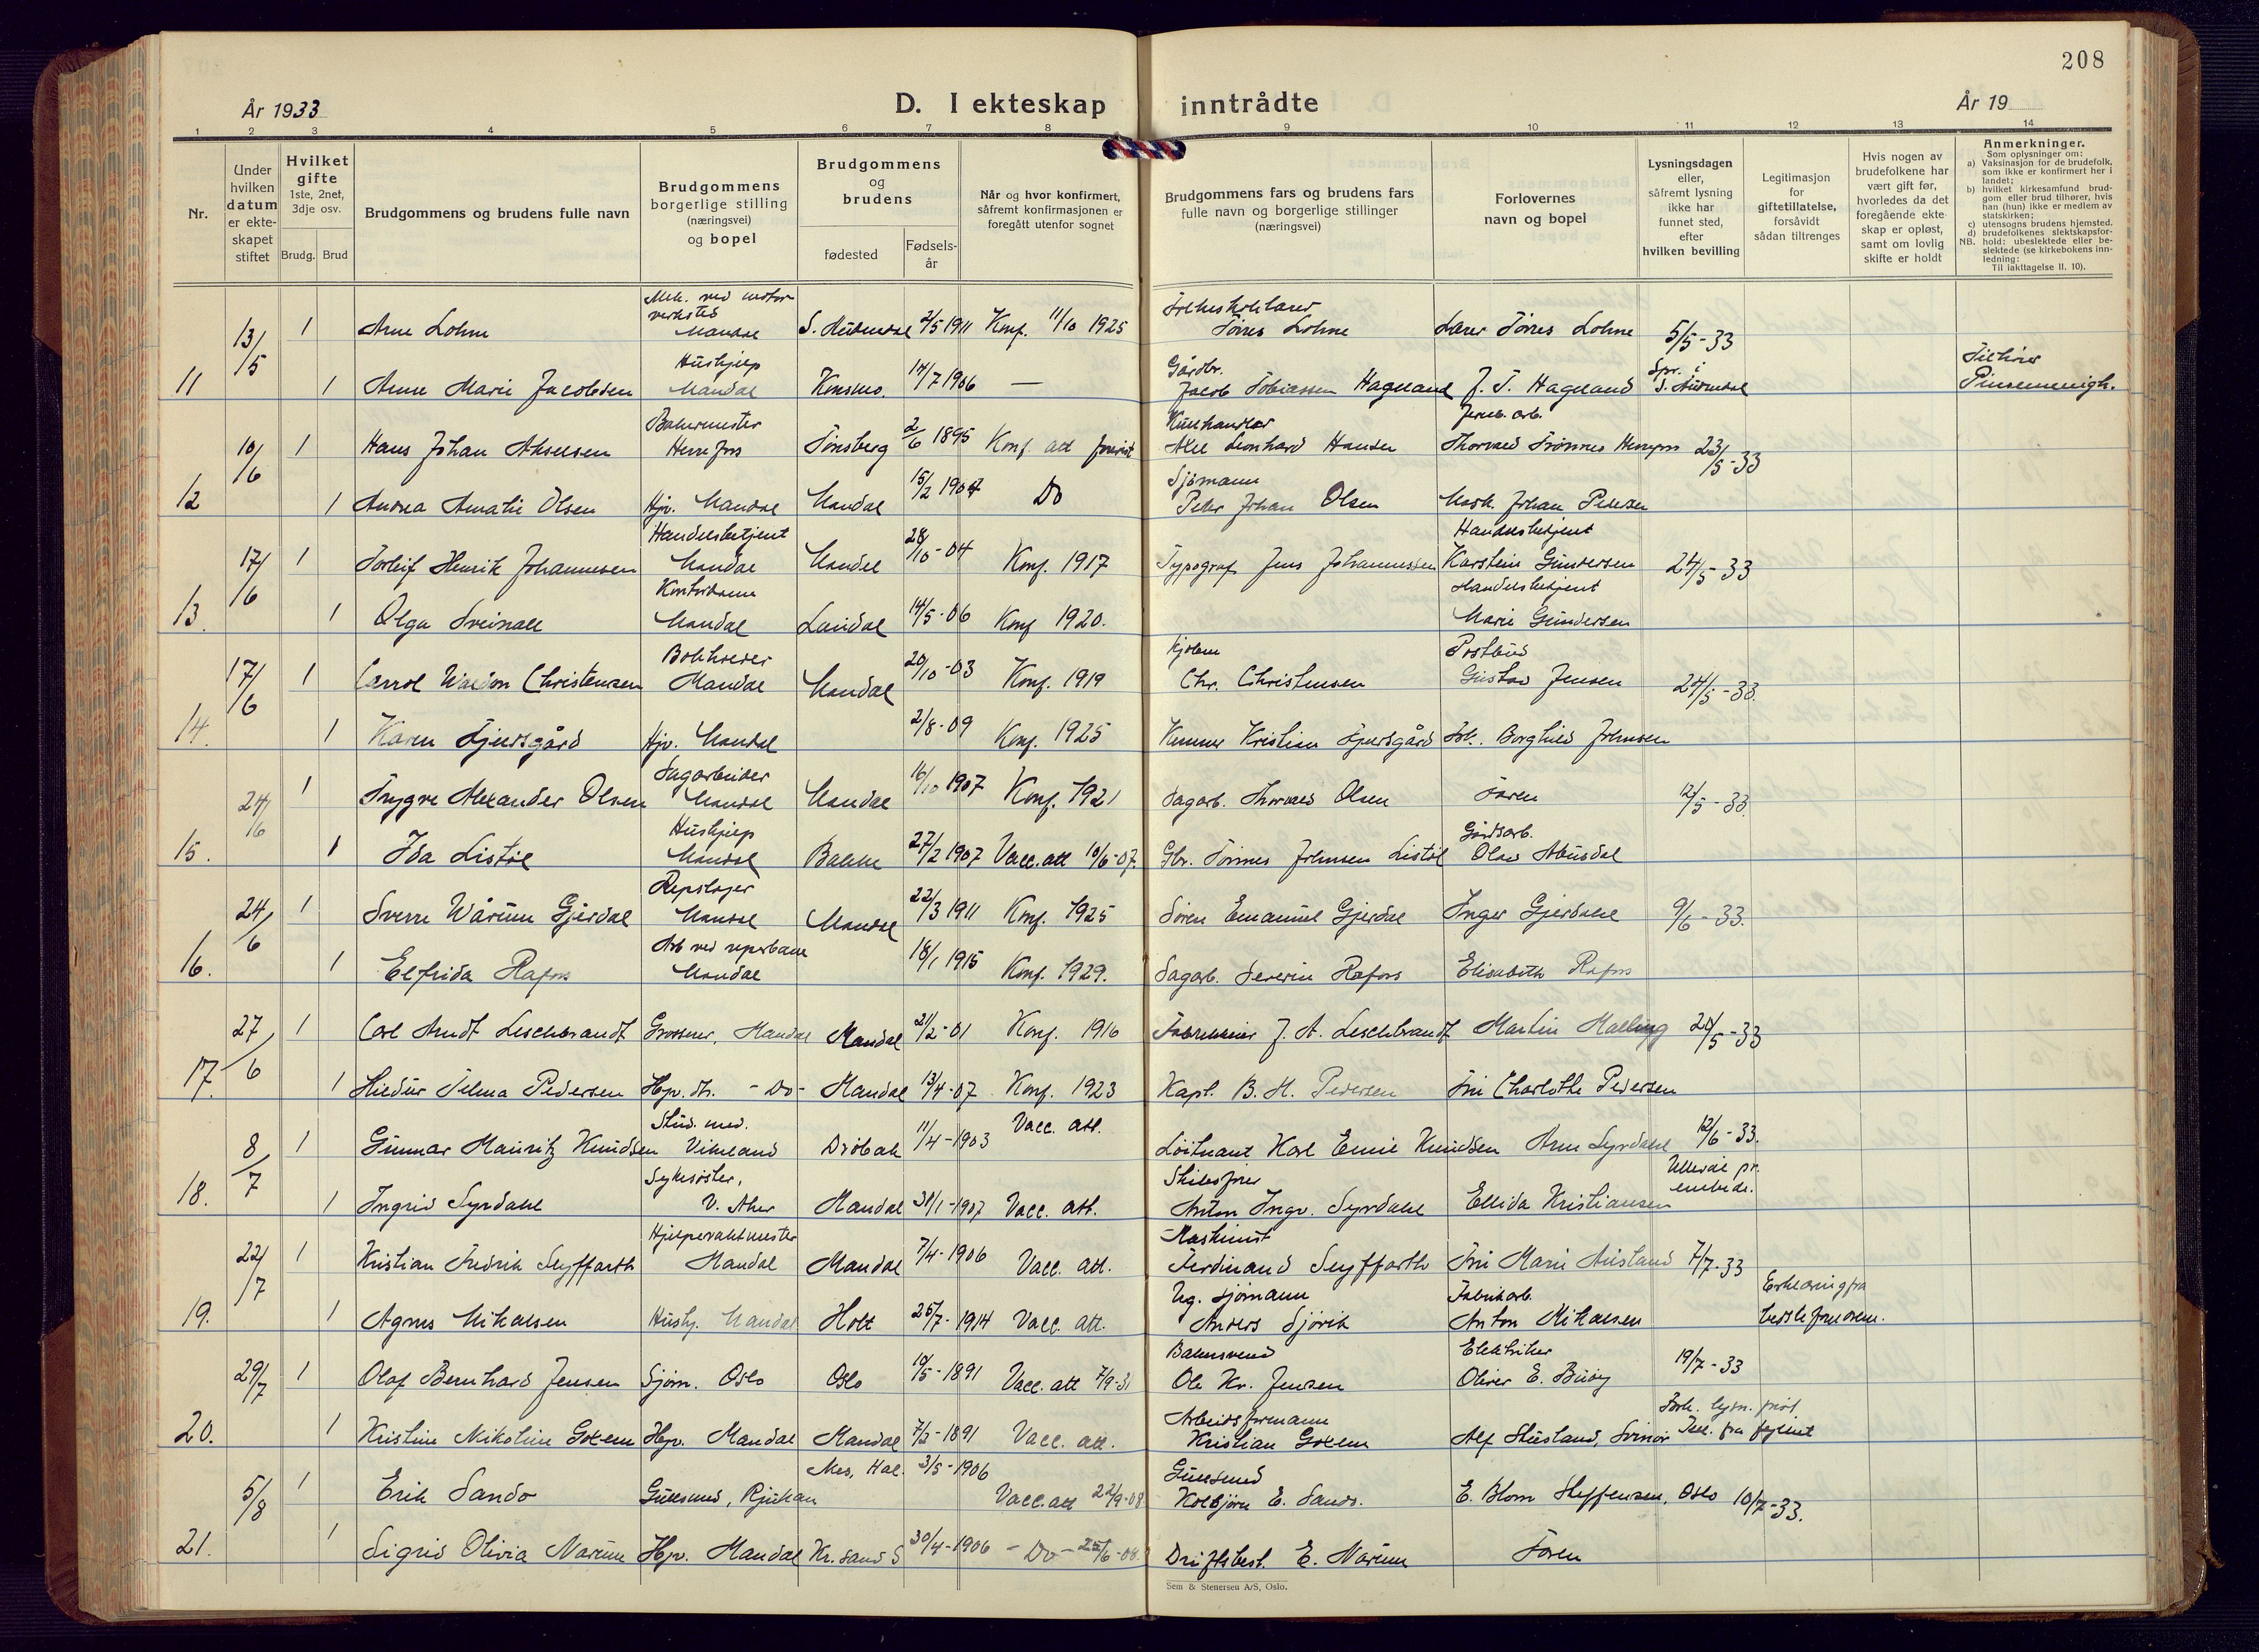 208
År 1933
D. I ekteskap inntrådte
År 19
1 2 3 4 5 6 7 8 9 10 11 12 13 14
Nr.
Under hvilken datum er ekteskapet stiftet
Hvilket gifte
1ste, 2net, 3dje osv.
Brudg. Brud
Brudgommens og brudens fulle navn
Brudgommens borgerlige stilling (næringsvei) og bopel
Brudgommens og brudens
fødested
Fødselsår
Når og hvor konfirmert, såfremt konfirmasjonen er foregått utenfor sognet
Brudgommens fars og brudens fars fulle navn og borgerlige stillinger (næringsvei)
Forlovernes navn og bopel
Lysningsdagen eller, såfremt lysning ikke har funnet sted, efter hvilken bevilling
Legitimasjon for giftetillatelse, forsåvidt sådan tiltrenges
Hvis nogen av brudefolkene har vært gift før, hvorledes da det foregående ekteskap er opløst, samt om lovlig skifte er holdt
Anmerkninger.
Som oplysninger om:
a) Vaksinasjon for de brudefolk, som ikke er konfirmert her i landet;
b) hvilket kirkesamfund brudgom eller brud tilhører, hvis han (hun) ikke er medlem av statskirken;
c) utensogns brudens hjemsted.
d) brudefolkenes slektskapsforhold: ubeslektede eller beslektede (se kirkebokens innledning:
NB.
Til iakttagelse II. 10).
13/5 1 Arne Lohne Mek. ved motorverksted Mandal S. Audnedal 2/5 1911 Konf. 11/10 1925 Tørres Lohne Lærer Tørres Lohne 5/5-33
11 1 Anne Marie Jacobsen Hushjelp Mandal Konsmo. 14/7 1906 — Gårdbr. Jacob Tobiassen Hageland J. T. Hageland S. Audnedal Tilhører Pinsemenigh.
10/6 1 Hans Johan Akselsen Bakermester Herrefoss Tønsberg 2/6 1895 Konf. att forevist Kullhandler Aksel Leonhard Hansen Jernb. arb. Thorvald Trønnes 23/5-33
12 1 Andrea Amalie Olsen Hjv. Mandal Mandal 15/2 1904 Do Sjömann Peter Johan Olsen Mask. Johan Pedersen
17/6 1 Torleif Henrik Johannessen Handelsbetjent Mandal Mandal 28/10-04 Konf. 1917 Typograf Jens Johannessen Handelsbetjent Karstein Gundersen 24/5-33
13. 1 Olga Sveinall Kontordame Mandal Laudal 14/5-06 Konf 1920. Handelsbetjent Marie Gundersen
17/6 1 Carrol Waldon Christensen Bokholder Mandal Mandal 20/10-03 Konf. 1919 Chr. Christensen Postbud Gustav Jensen 24/5-33.
14. 1 Karen Fjeldsgård Hjv. Mandal 2/8-09 Konf. 1925 Kristian Fjeldsgård Borghild Johnsen
24/6 1 Trygve Alexander Olsen Sagarbeider Mandal Mandal 16/10 1907 Konf. 1921 Sagarb. Thorvald Olsen Faren 12/5-33.
15. 1 Ida Listøl Hushjelp Mandal Bakke 27/2 1907 Vacc. att 10/6-07. Gbr. Tønnes Johnsen Listøl Gårdsarb. Olav Abusdal
24/6 1 Sverre Wårum Gjerdal Repslager Mandal Mandal 22/3 1911 Konf. 1925 Søren Emanuel Gjerdal Inger Gjerdal 9/6-33.
16. 1 Elfrida Rafoss Arb ved reperbane Mandal 18/1 1915 Konf. 1929. Sagarb. Severin Rafoss Elisabeth Rafoss
27/6 1 Carl Arndt Leschbrandt Grosserer, Mandal Mandal 21/2-01 Konf. 1916 J. A. Leschbrandt Martin Malling 24/5-33
17. 1 Hildur Telma Pedersen Hjv. dtr. -Do- Mandal 13/4-07 Konf. 1923 Kapt. B. M. Pedersen Fru Charlotte Pedersen
8/7 1 Gunnar Mauritz Knudsen Stud. med. Vikeland Drøbak 11/4-1903 Vacc. att. Löitnant Karl Emil Knudsen Arne Syrdahl 12/6-33.
18. 1 Ingrid Syrdahl Sykesøster, V. Aker Mandal 31/1-1907 Vacc. att. Skibsfører Anton Ingv. Syrdahl Ellida Kristiansen Ullevål pr. embede.
22/7 1 Kristian Fredrik Seyffarth Hjelpevaktmester Mandal Mandal 7/4-1906 Vacc. att. Maskinist Ferdinand Seyffarth Fru Marie Ausland 7/7-33
19. 1 Agnes Mikalsen Hushj. Mandal Holt 25/7-1914 Vacc. att. Ug. sjømann Anders Sjövik Fabrikarb. Anton Mikalsen Erklæring fra
29/7 1 Olaf Bernhard Jensen Sjøm. Oslo Oslo 10/5-1891 Vacc. att 7/9-31 Bakersvend Ole Kr. Jensen Elektriker Oliver E. Buöy 19/7-33
20. 1 Kristine Nikoline Goxem Hjv. Mandal Mandal 7/2-1891 Vacc. att. Arbeidsformann Kristian Goxem Alf Skusland, Svinør
5/8 1 Erik Sando Gullsmed, Rjukan Nes, Hal. 3/5-1906 Vacc. att 22/9-08 Gullsmed Kolbjørn E. Sando. E. Blom Steffensen, Oslo 10/7-33.
21. 1 Sigrid Olivia Narum Hjv. Mandal Kr.sand S 30/4-1906 -Do- 25/6-08 Driftsbest. E. Narum Faren
Sem & Stenersen A/S, Oslo.